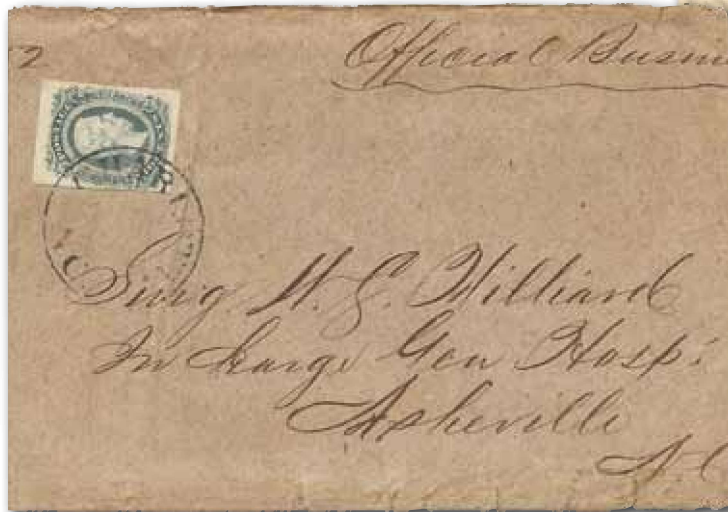 2
Official Busin
Surg. W. L. Hilliard
In Charge Gen Hosp.
Asheville
N. C